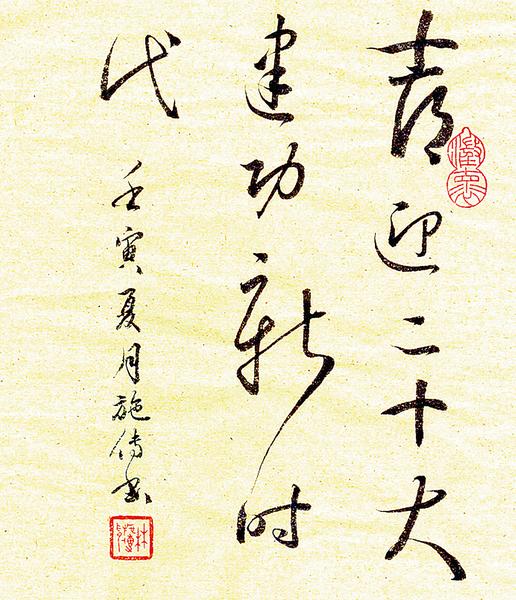 喜迎二十大
建功新时
代
壬寅夏月施传书